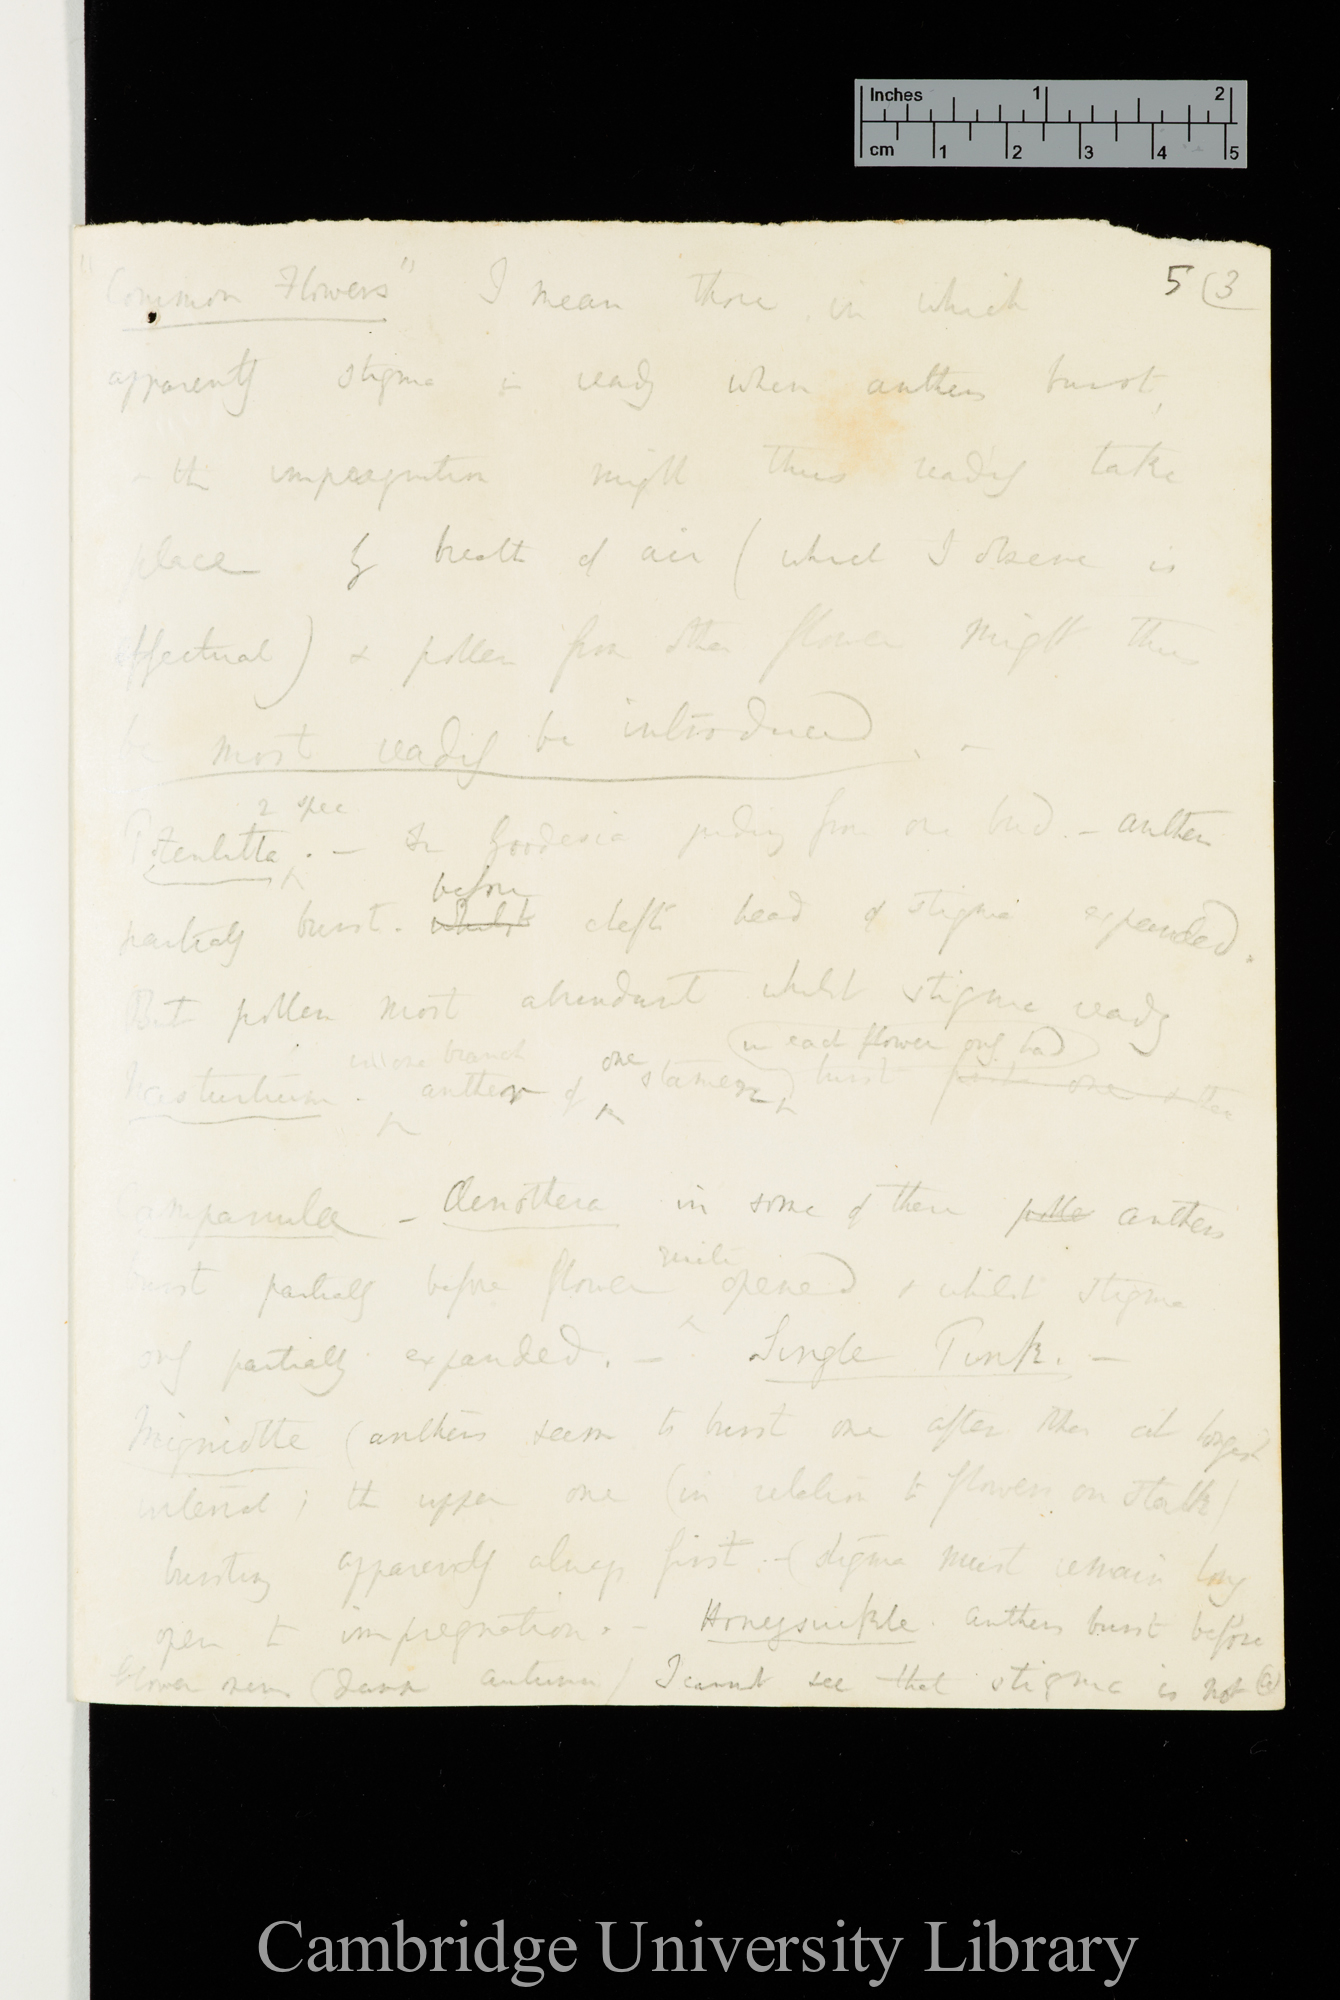 Inches 1 2
cm 1 2 3 4 5
5 (3
"Common Flowers" I mean those in which
apparently stigma is ready when anthers burst,
& the impregnation might thus readily take
place by breath of air (which I observe is
effectual) & pollen from other flower might thus
be most readily be introduced. —
2 spec
Potentilla. — In Goodesia judging from one bud. — anthers
before
partially burst. whilst cleft head of stigma expanded.
But pollen most abundant whilst stigma ready
in one branch one in each flower only had
Nasturtium. anther of stamen burst first one & then
Campanulæ — Oenothera in some of them polle anthers
quite
burst partially before flower opened & whilst stigma
only partially expanded. — Single Pink. —
Migniotte (anthers seem to burst one after other at longest
interval; the upper one (in relation to flowers on stalk)
bursting apparently always first. — (stigma must remain long
open to impregnation. — Honeysuckle. anthers burst before
flower opens (dark autumn) I cannot see that stigma is not
Cambridge University Library